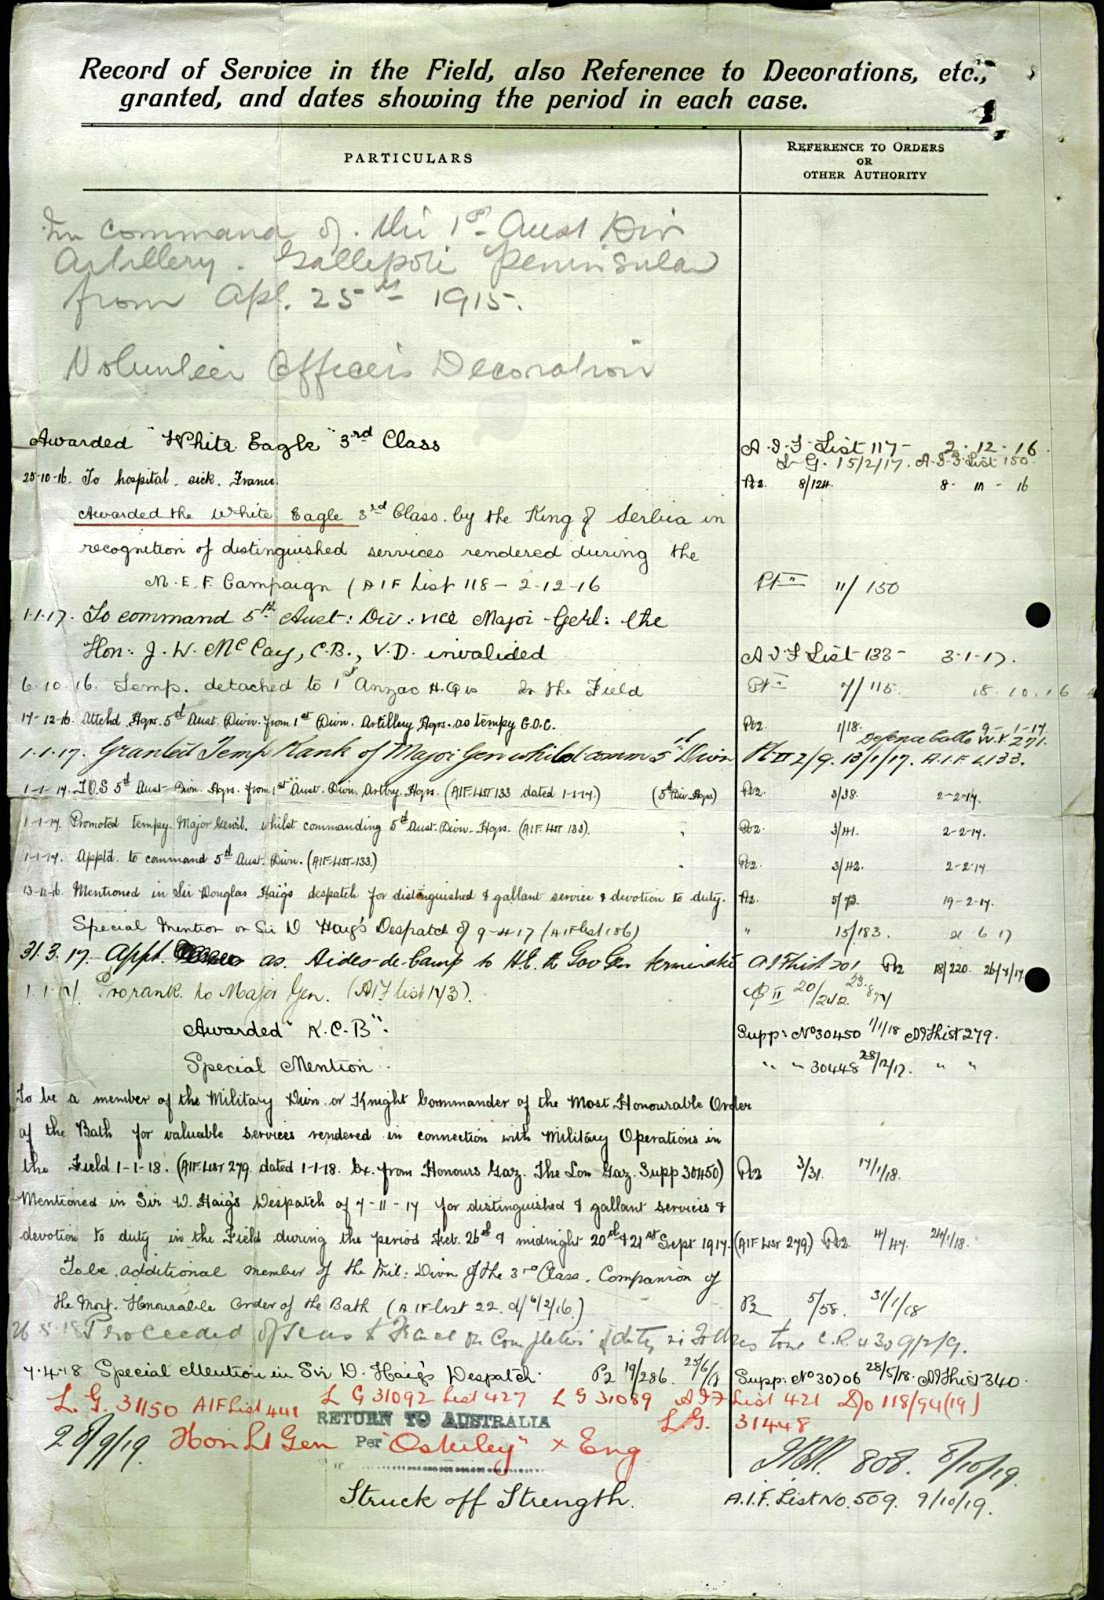 Record of Service in the Field, also Reference to Decorations, etc.,
granted, and dates showing the period in each case.
PARTICULARS
REFERENCE TO ORDERS
OR
OTHER AUTHORITY
In command of the 1st Aust Div
Artillery. Gallipoli Peninsular
from Apl. 25th 1915.
Volunteer Officers Decoration
Awarded "White Eagle" 3rd Class A.I.F. List 117 - 2.12.16
L.G. 15/2/17. A.I.F. List 150.
25-10-16. To hospital, sick, France. Pt2. 8/124. 8-11-16
Awarded the White Eagle 3rd Class. by the King of Serbia in
recognition of distinguished services rendered during the
M.E.F. Campaign (AIF List 118 - 2-12-16 Pt 11/150
1.1.17. To command 5th Aust: Div: vice Major-Genl: the
Hon: J.W. McCay, C.B., V.D. invalided A.I.F List 133 - 3.1.17.
6.10.16. Temp. detached to 1st Anzac H.Qrs In the Field Pt 7/115. 18.10.16
17-12-16. Attchd Hqrs. 5th Aust. Divn. from 1st Divn. Artillery Hqrs. as tempy G.O.C. Pt2. 1/18. 9-1-17
Defence Cable W.V. 271.
1.1.17. Granted Temp Rank of Major Gen whilst comm 5th Divn Pt II 2/9. 13/1/17. A.I.F L133.
1-1-17. T.O.S 5th Aust Divn. Hqrs. from 1st Aust. Divn. Artery. Hqrs. (AIF LIST 133 dated 1-1-17.) (5th Div Hqrs) Pt2. 3/38. 2-2-17.
1-1-17. Promoted tempy. Major Genrl. whilst commanding 5th Aust. Divn. Hqrs. (AIF. LIST 133). " Pt2. 3/41. 2-2-17.
1-1-17. Apptd. to command 5th Aust. Divn. (AIF-LIST-133.) " Pt2. 3/42. 2-2-17
13-11-16. Mentioned in Sir Douglas Haig's despatch for distinguished & gallant service & devotion to duty. Pt2. 5/73. 19-2-17.
Special Mention in Sir D Haig's Despatch of 9-4-17 (AIF list 186) " 15/183. 21 6 17
31.3.17. Appt. as Aides-de-Camp to H.E. the Gov Gen terminated AIF list 201 Pt2 18/220. 26/7/17
1.1.17. Pro rank to Major Gen. (AIF list 173).
Awarded "K.C.B": Supp: No 30450 1/1/18 AIF list 279.
Special Mention. " " 30448 28/12/17. " "
To be a member of the Military Divn. or Knight Commander of the Most Honourable Order
of the Bath for valuable services rendered in connection with Military Operations in
the Field 1-1-18. (AIF. LIST 279 dated 1-1-18. Ex. from Honours Gaz. The Lon Gaz. Supp 30450) Pt2 3/31. 17/1/18.
Mentioned in Sir D. Haig's Despatch of 7-11-17 for distinguished & gallant services &
devotion to duty in the Field during the period Feb. 26th & midnight 20th & 21st Sept 1917. (AIF LIST 279) Pt2 4/47. 24/1/18.
To be additional member of the Mil: Divn of the 3rd Class, Companion of
the Most Honourable Order of the Bath (A.IF List 22. d/6/2/16.) P2 5/58. 31/1/18
26 8.18 Proceeded O'seas to France on Completion of duty
7.4.18 Special Mention in Sir D. Haig's Despatch. P2 19/286. 25/6/18 Supp: No 30706 28/5/18. AIF list 340.
L.G. 31150 AIF List 441 L G 31092 List 427 L G 31089 AIF List 421 Do 118/94(19)
L.G. 31448
RETURN TO AUSTRALIA
28/9/19. Hon Lt Gen Per "Osterley" x Eng 808. 8/10/19.
Struck off Strength. A.I.F. List No. 509. 9/10/19.